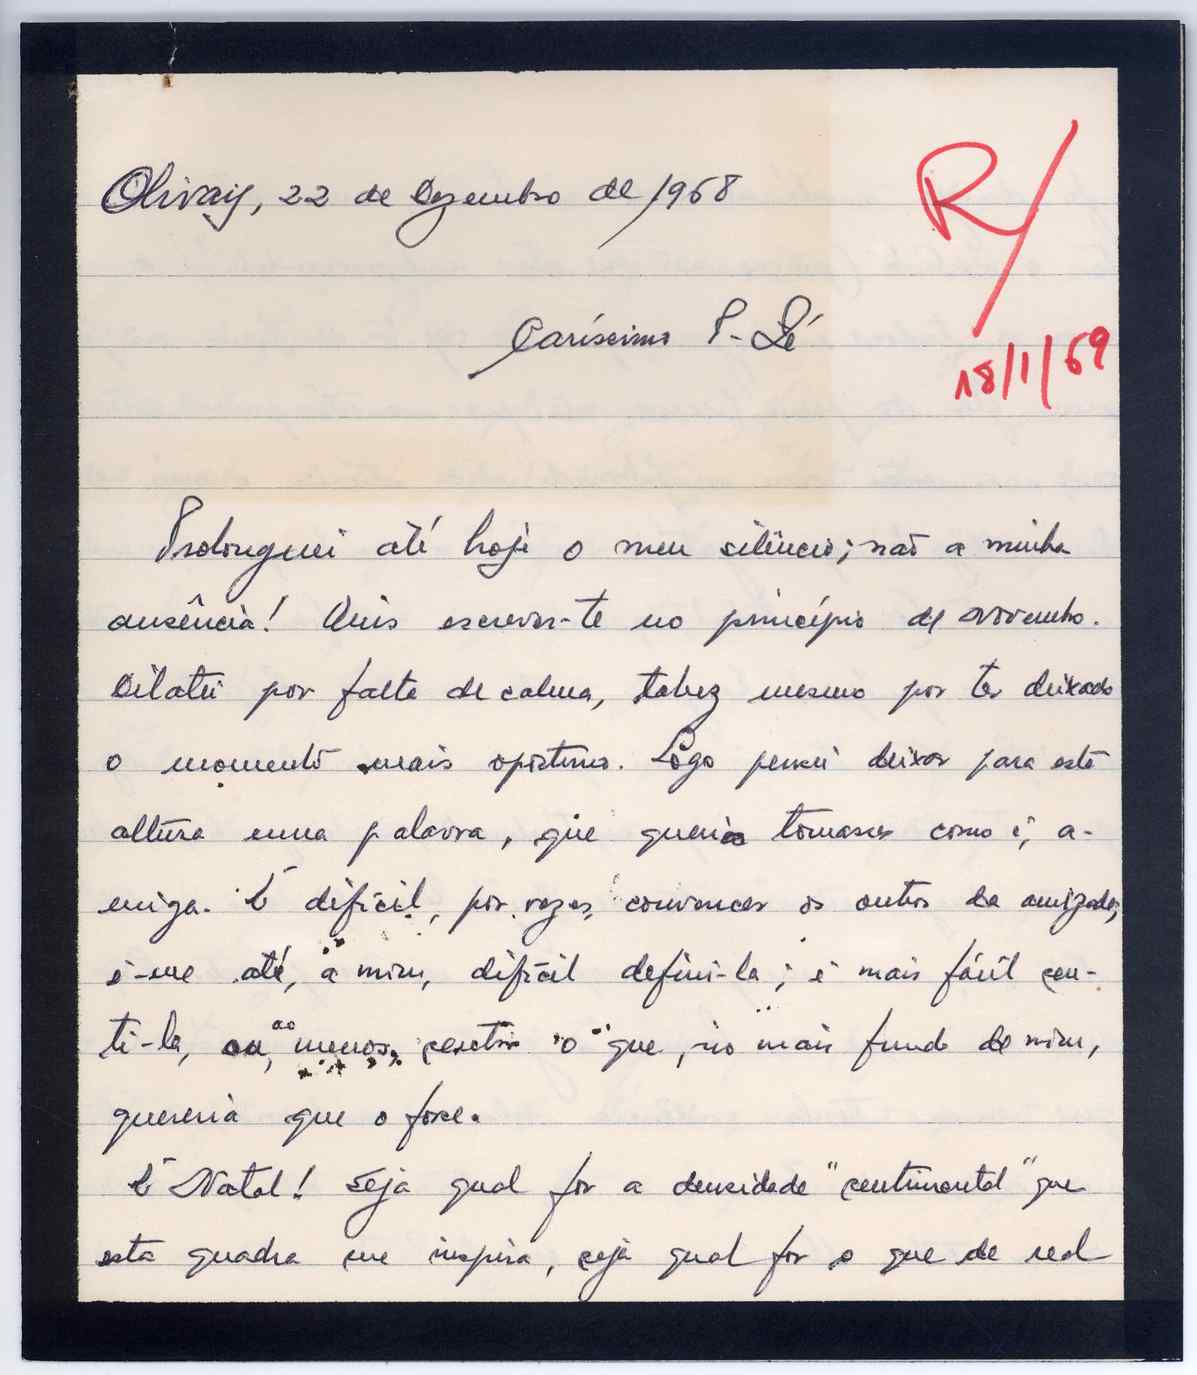 Olivais, 22 de Dezembro de 1968
R/
18/1/69
Caríssimo P. Zé
Prolonguei até hoje o meu silêncio; não a minha
ausência! Quis escrever-te no princípio de Novembro.
Dilatei por falta de calma, talvez mesmo por ter deixado
o momento mais oportuno. Logo pensei deixar para esta
altura uma palavra, que queria tomasses como é, a-
miga. É difícil, por vezes, convencer os outros da amizade;
é-me até, a mim, difícil defini-la; é mais fácil sen-
ti-la, ou, ao menos, sentir "o" que, no mais fundo de mim,
quereria que o fosse.
É Natal! Seja qual for a densidade "sentimental" que
esta quadra me inspira, seja qual for o que de real